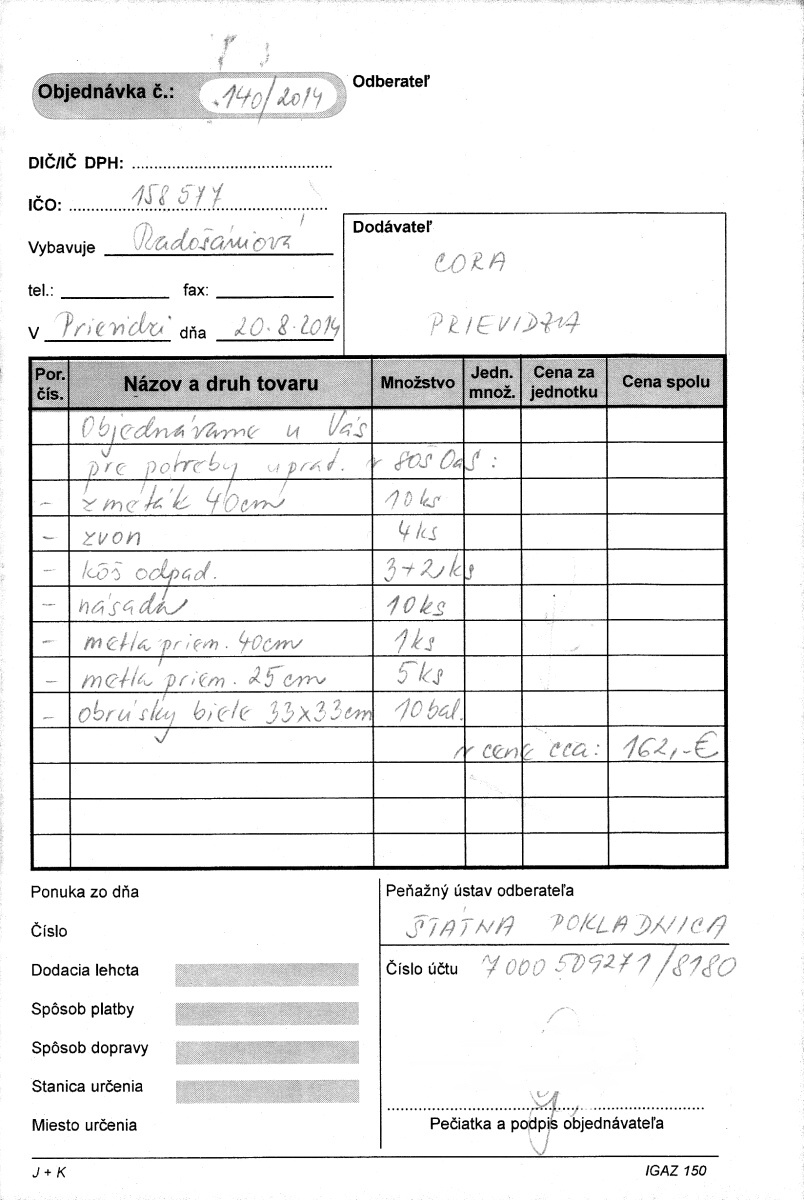 Objednávka č.: 140/2014
Odberateľ
DIČ/IČ DPH:
IČO: 158 577
Vybavuje Radošániová
tel.: fax:
V Prievidzi dňa 20.8.2014
Dodávateľ
CORA
PRIEVIDZA
Por. čís. Názov a druh tovaru Množstvo Jedn. množ. Cena za jednotku Cena spolu
Objednávame u Vás
pre potreby uprad. v SOŠ OaS :
- zmeták 40cm 10ks
- zvon 4ks
- kôš odpad. 3+2ks
- násada 10ks
- metla priem. 40cm 1ks
- metla priem. 25cm 5ks
- obrúsky biele 33x33cm 10bal.
v cene cca: 162,-€
Ponuka zo dňa
Číslo
Dodacia lehota
Spôsob platby
Spôsob dopravy
Stanica určenia
Miesto určenia
Peňažný ústav odberateľa
ŠTÁTNA POKLADNICA
Číslo účtu 7000509271/8180
Pečiatka a podpis objednávateľa
J + K
IGAZ 150